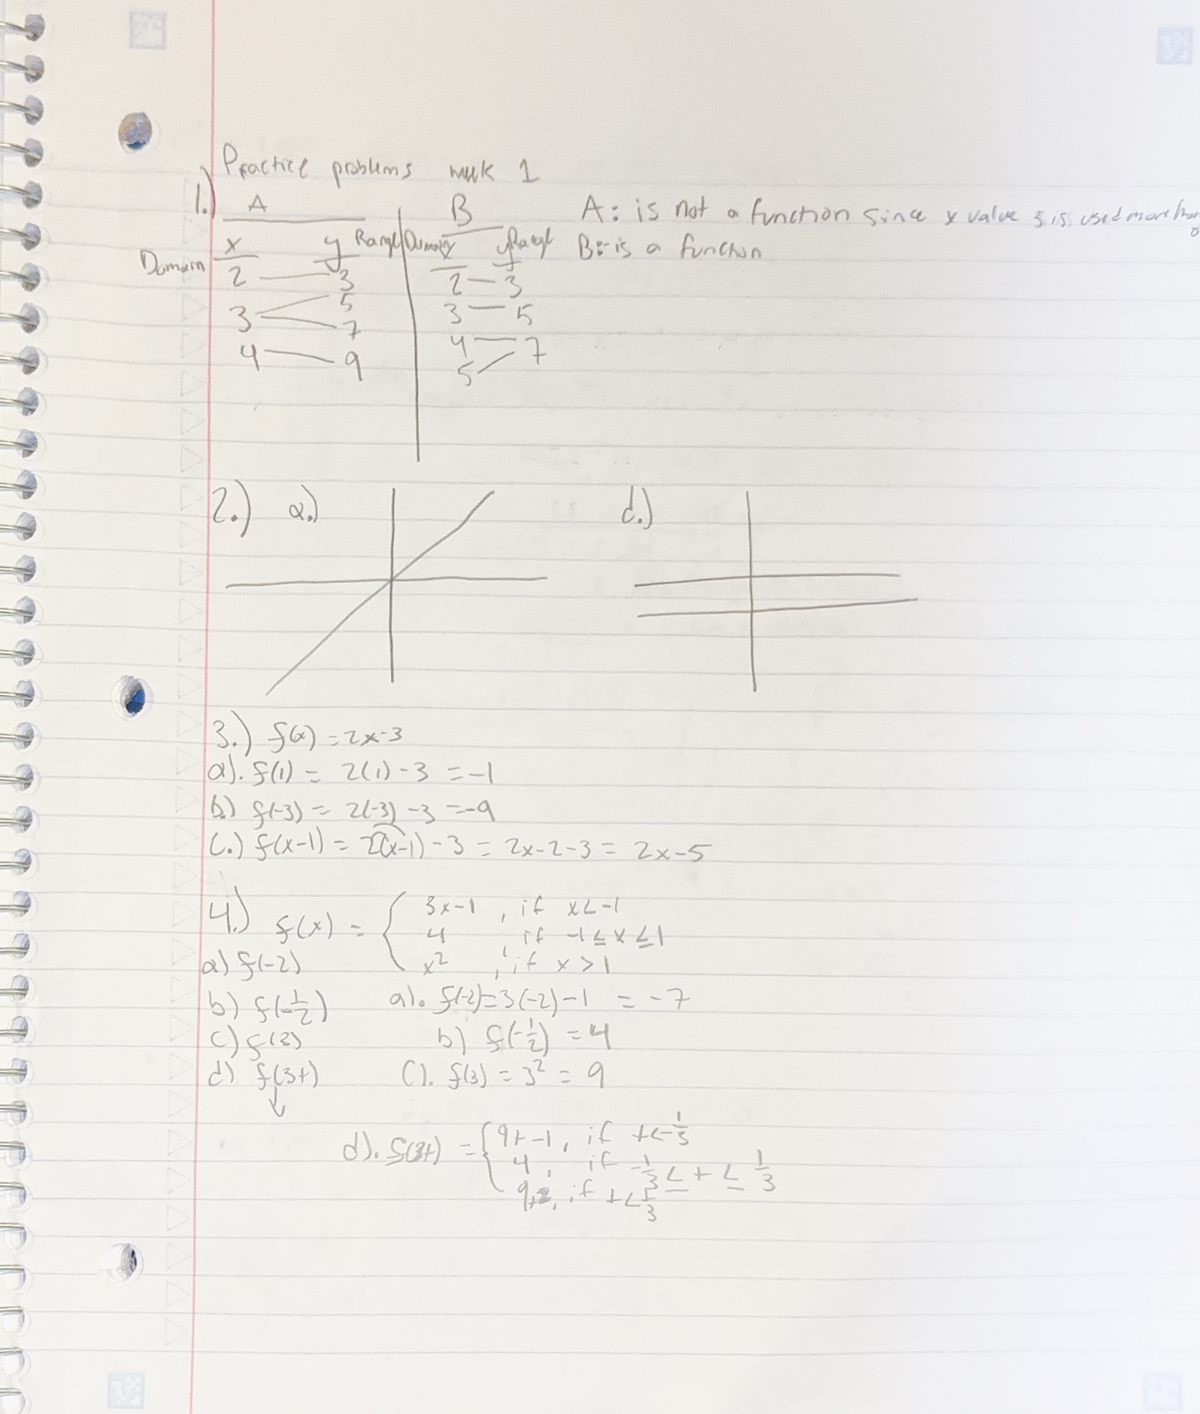 Practice problems week 1
1.) A B A: is not a function since x value 3 is used more than
x y Range Domain x y Range B: is a function
Domain
2 3 2 3
3 5 3 5
7
4 9 4 7
5
2.) a.) d.)
3.) f(x) = 2x-3
a). f(1) = 2(1) - 3 = -1
b.) f(-3) = 2(-3) - 3 = -9
c.) f(x-1) = 2(x-1) - 3 = 2x-2-3 = 2x-5
4.) f(x) = { 3x-1 , if x<-1
4 , if -1≤x≤1
x² , if x>1
a) f(-2)
b) f(-1/2) a). f(-2)=3(-2)-1 = -7
c) f(3) b) f(-1/2) = 4
d) f(3t) c). f(3) = 3² = 9
↓
d). f(3t) = { 9t-1, if t<-1/3
4, if -1/3 ≤ t ≤ 1/3
9t², if t<1/3